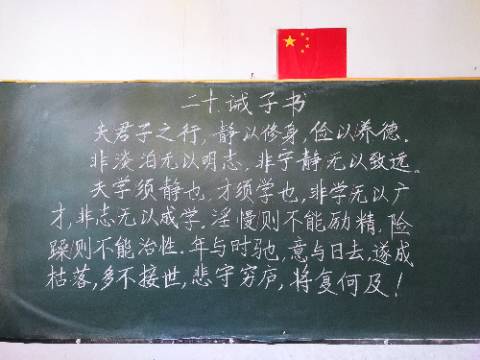 二十诫子书
夫君子之行,静以修身,俭以养德.
非淡泊无以明志,非宁静无以致远.
夫学须静也,才须学也,非学无以广
才,非志无以成学.淫慢则不能励精,险
躁则不能治性.年与时驰,意与日去,遂成
枯落,多不接世,悲守穷庐,将复何及!